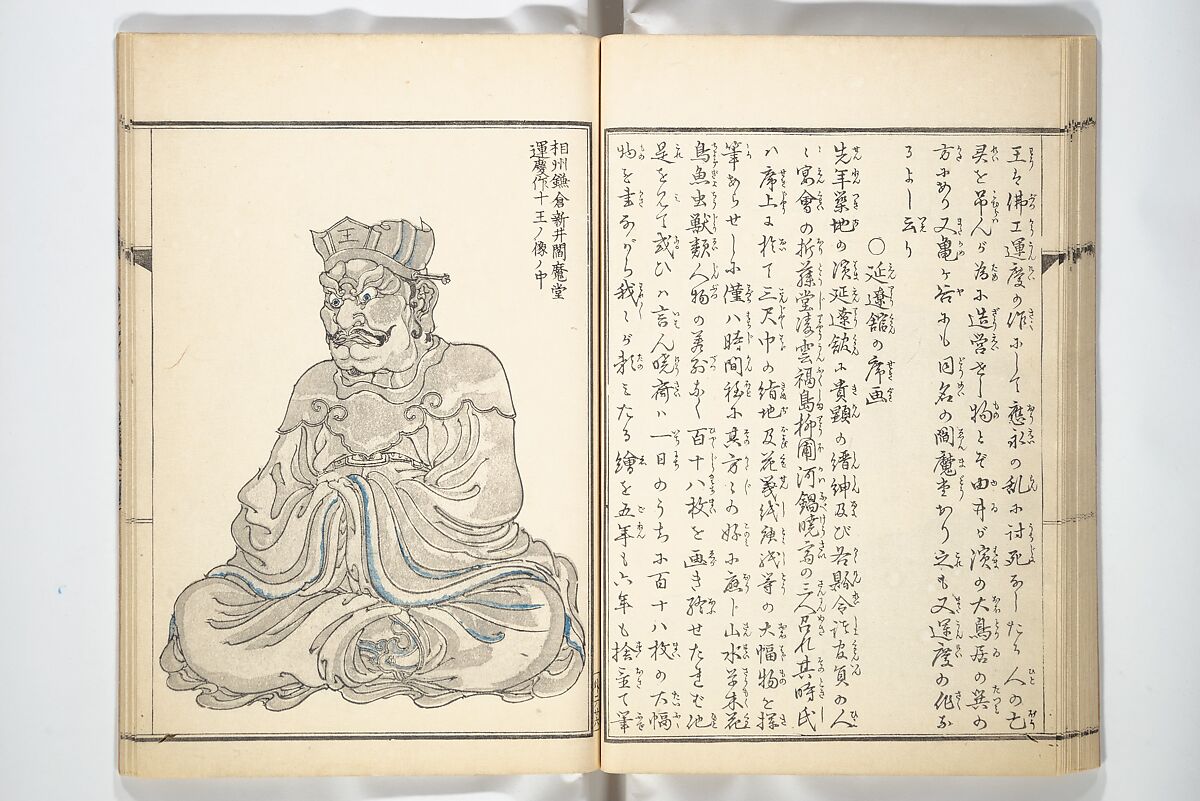 王ハ佛工運慶の作にして應永の乱に討死なしたる人の亡
灵を吊んが為に造営せし物とぞ由井が濱の大鳥居の巽の
方にあり又亀ヶ谷にも同名の閻魔堂あり之も又運慶の作な
るよし云り
○延遼舘の席画
先年築地の濱延遼舘に貴顕の縉紳及び各縣令官員の人
〻宴會の折藤堂凌雲福島柳圃河鍋暁斎の三人召れ其時氏
ハ席上に於て三尺巾の絹地及花箋紙唐紙等の大幅物を揮
筆あらせしに僅八時間程に其方〻の好に應ト山水草木花
鳥魚虫獣類人物の差別なく百十八枚を画き終せたれば他
是を見て或ひハ言ん暁斎ハ一日のうちに百十八枚の大幅
物を画ながら我〻が頼ミたる繪を五年も六年も捨置て筆
相州鎌倉新井閻魔堂
運慶作十王ノ像ノ中
王